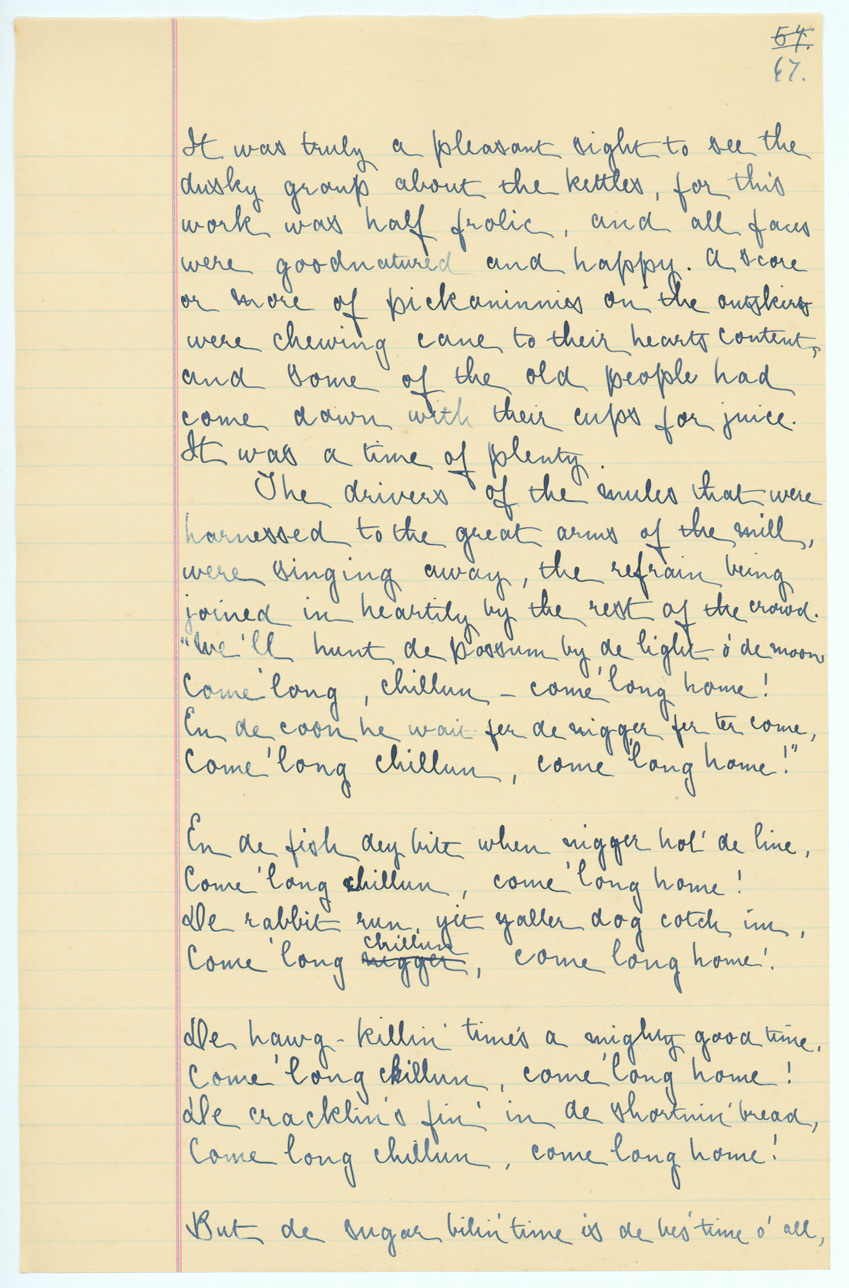 54.
67.
It was truly a pleasant sight to see the
dusky group about the kettles, for this
work was half frolic, and all faces
were goodnatured and happy. A score
or more of pickaninnies on the outskirts
were chewing cane to their hearts content,
and some of the old people had
come down with their cups for juice.
It was a time of plenty.
The drivers of the mules that were
harnessed to the great arms of the mill,
were singing away, the refrain being
joined in heartily by the rest of the crowd.
"We'll hunt de possum by de light o' de moon
Come 'long, chillun - come 'long home!
En de coon he wait fer de nigger fer ter come,
Come 'long chillun, come 'long home!"
En de fish dey bite when nigger hol' de line,
Come 'long chillun, come 'long home!
De rabbit run, yit yaller dog cotch im,
chillun
Come 'long nigger, come long home!
De hawg-killin' time's a mighty good time,
Come 'long chillun, come 'long home!
De cracklin's fin' in de shortnin' bread,
Come long chillun, come long home!
But de sugar bilin' time is de bes' time o' all,